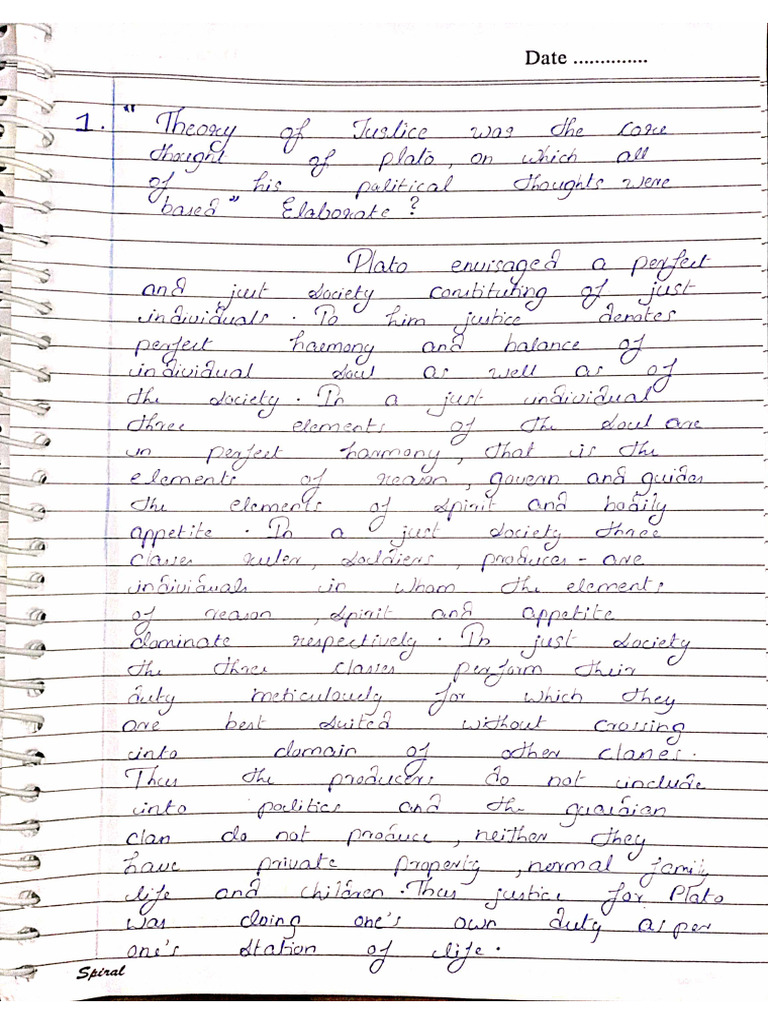 Date ..............
1. " Theory of Justice was the core
thought of plato, on which all
of his political thoughts were
based" Elaborate ?
Plato envisaged a perfect
and just society constituting of just
individuals. To him justice denotes
perfect harmony and balance of
individual soul as well as of
the society. In a just individual
three elements of the soul are
in perfect harmony, that is the
elements of reason, govern and guides
the elements of spirit and bodily
appetite. In a just society three
classes ruler, soldiers, producer - are
individuals in whom the elements
of reason, spirit and appetite
dominate respectively. In just society
the three classes perform their
duty meticulously for which they
are best suited without crossing
into domain of other classes.
Thus the producers do not include
into politics and the guardian
class do not produce, neither they
have private property, normal family
life and children. Thus justice for Plato
was doing one's own duty as per
one's station of life.
Spiral